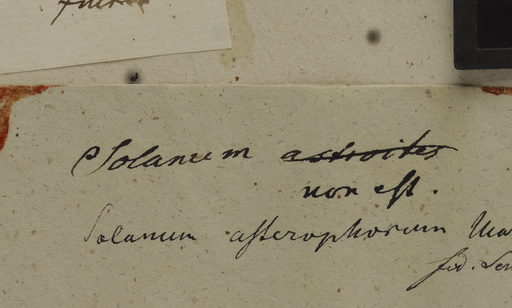 Solanum astroites
non est.
Solanum asterophorum Mar
fid. Sen